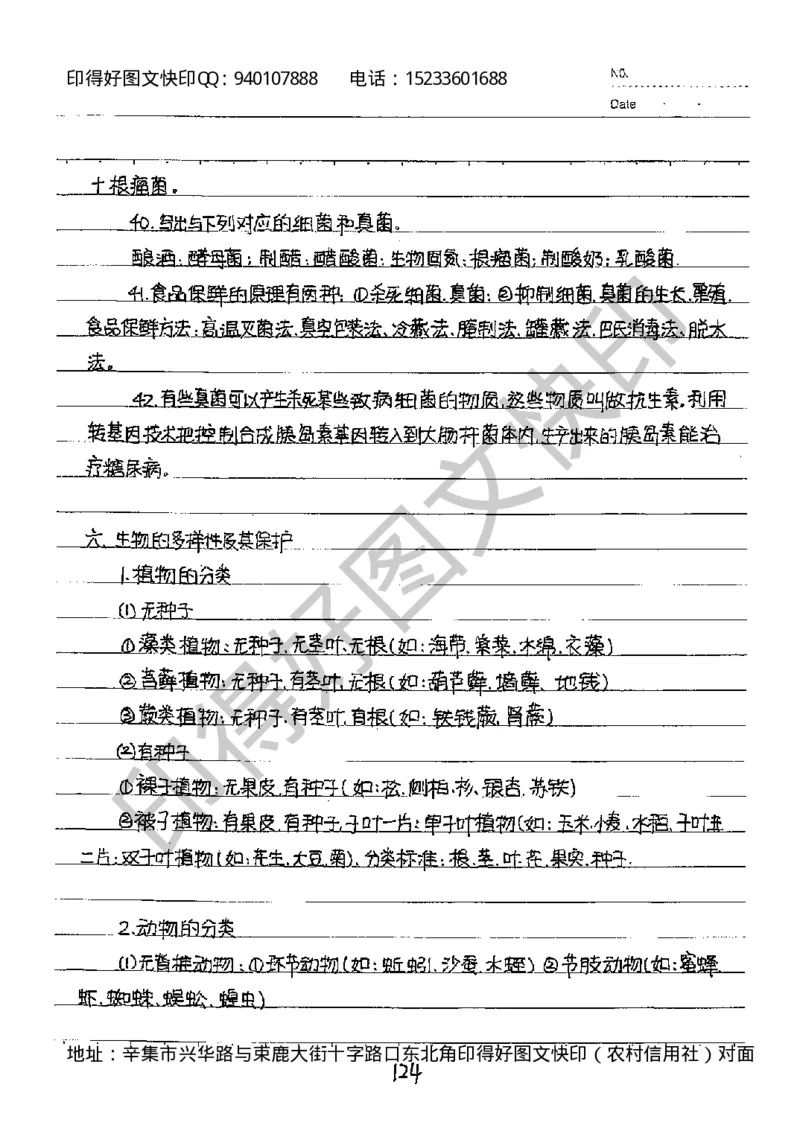 印得好图文快印QQ：940107888 电话：15233601688
NO.
Date
十根瘤菌。
40.写出与下列对应的细菌和真菌。
酿酒：酵母菌；制醋：醋酸菌；生物固氮：根瘤菌；制酸奶：乳酸菌.
41.食品保鲜的原理有两种：①杀死细菌.真菌；②抑制细菌.真菌的生长.繁殖.
食品保鲜方法：高温灭菌法.真空包装法、冷藏法、腌制法.罐藏法.巴氏消毒法、脱水
法。
42.有些真菌可以产生杀死某些致病细菌的物质,这些物质叫做抗生素.利用
转基因技术把控制合成胰岛素基因转入到大肠杆菌体内,生产出来的胰岛素能治
疗糖尿病。
六.生物的多样性及其保护
1.植物的分类
(1)无种子
①藻类植物：无种子.无茎叶、无根(如：海带.紫菜.水绵.衣藻)
②苔藓植物：无种子.有茎叶.无根(如：葫芦藓.墙藓、地钱)
③蕨类植物：无种子.有茎叶.有根(如：铁线蕨.肾蕨)
(2)有种子
①裸子植物：无果皮.有种子(如：松.侧柏.杉、银杏.苏铁)
②被子植物：有果皮.有种子.子叶一片：单子叶植物(如：玉米.小麦、水稻.子叶
二片：双子叶植物(如：花生.大豆.菊)、分类标准：根.茎.叶.花.果实.种子.
2.动物的分类
(1)无脊椎动物：①环节动物(如：蚯蚓、沙蚕.水蛭) ②节肢动物(如：蜜蜂.
虾.蜘蛛、蜈蚣、蝗虫)
地址：辛集市兴华路与束鹿大街十字路口东北角印得好图文快印（农村信用社）对面
124
印得好图文快印